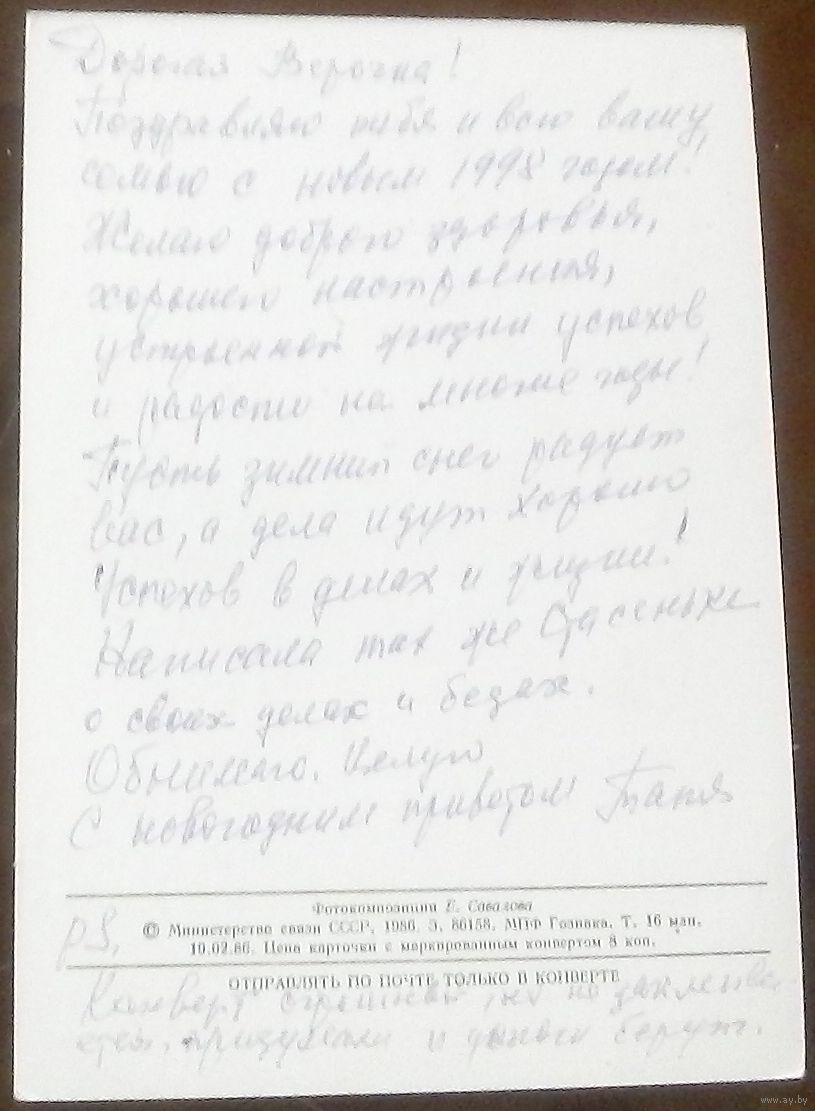 Дорогая Верочка!
Поздравляю тебя и всю вашу
семью с новым 1998 годом!
Желаю доброго здоровья,
хорошего настроения,
устроенной жизни успехов
и радости на многие годы!
Пусть зимний снег радует
вас, а дела идут хорошо
Успехов в делах и жизни!
Написала так же Стасеньке
о своих делах и бедах.
Обнимаю. Целую
С новогодним приветом Таня
Фотокомпозиция Е. Савалова
© Министерство связи СССР, 1986. З. 86158. МПФ Гознака. Т. 16 млн.
10.02.86. Цена карточки с маркированным конвертом 8 коп.
P.S.
ОТПРАВЛЯТЬ ПО ПОЧТЕ ТОЛЬКО В КОНВЕРТЕ
Конверт страшный, но не заклеива-
ется. придумали и деньги берут.
www.ay.by